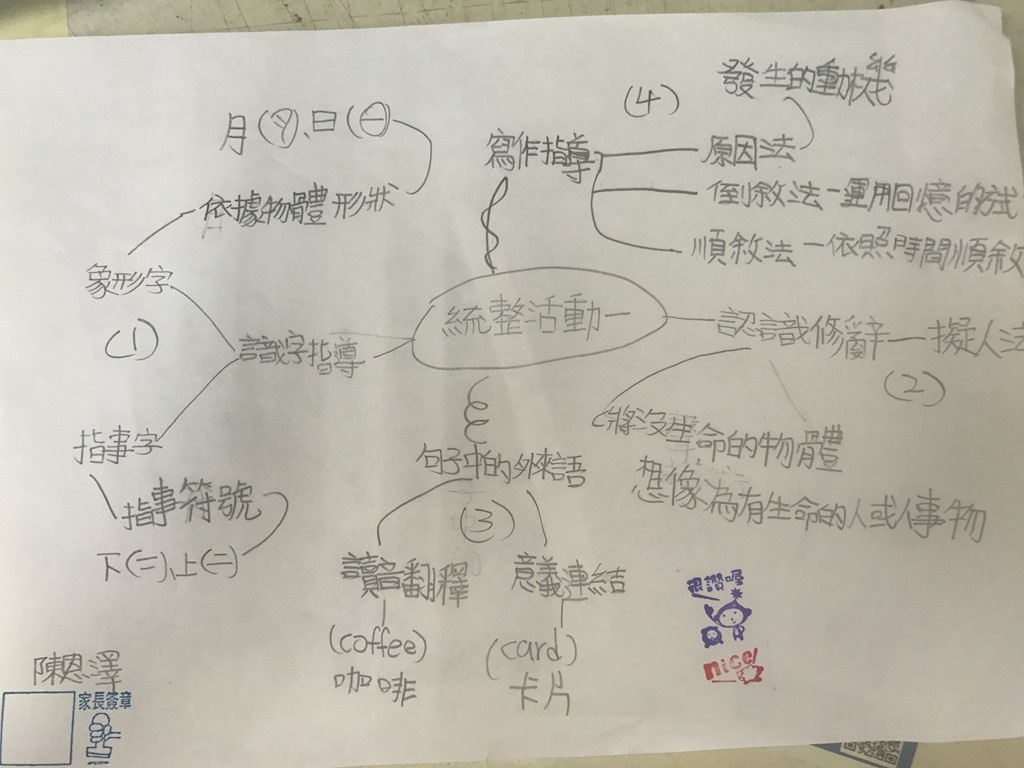 統整活動一
識字指導
(1)
象形字
依據物體形狀
月(
)、日(
指事字
指事符號
下(二)、上(二)
認識修辭－擬人法
(2)
將沒生命的物體
想像為有生命的人或人事物
句子中的外來語
(3)
讀音翻釋
(coffee)
咖啡
意義連結
(card)
卡片
寫作指導
(4)
原因法
發生的動機
倒敘法－運用回憶的方式
順敘法－依照時間順敘
很讚喔
nice!
陳恩澤
家長簽章